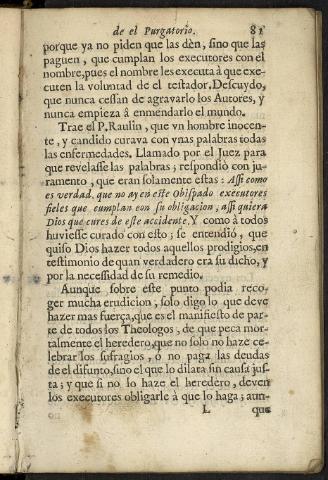 de el Purgatorio. 81
porque ya no piden que las dèn, sino que las
paguen, que cumplan los executores con el
nombre, pues el nombre les executa à que exe-
cuten la voluntad de el testador. Descuydo,
que nunca cessan de agravarlo los Autores, y
nunca empieza à enmendarlo el mundo.
Trae el P. Raulin, que vn hombre inocen-
te, y candido curava con vnas palabras todas
las enfermedades. Llamado por el Juez para
que revelasse las palabras; respondiò con ju-
ramento, que eran solamente estas: Assi como
es verdad, que no ay en este Obispado executores
fieles que cumplan con su obligacion, assi quiera
Dios que cures de este accidente. Y como à todos
huviesse curado con esto; se entendiò, que
quiso Dios hazer todos aquellos prodigios, en
testimonio de quan verdadero era su dicho, y
por la necessidad de su remedio.
Aunque sobre este punto podia reco-
ger mucha erudicion, solo digo lo que deve
hazer mas fuerça, que es el manifiesto de par-
te de todos los Theologos, de que peca mor-
talmente el heredero, que no solo no haze ce-
lebrar los sufragios, ó no paga las deudas
de el difunto, sino el que lo dilata sin causa jus-
ta; y que si no lo haze el heredero, deven
los executores obligarle à que lo haga; aun-
L que